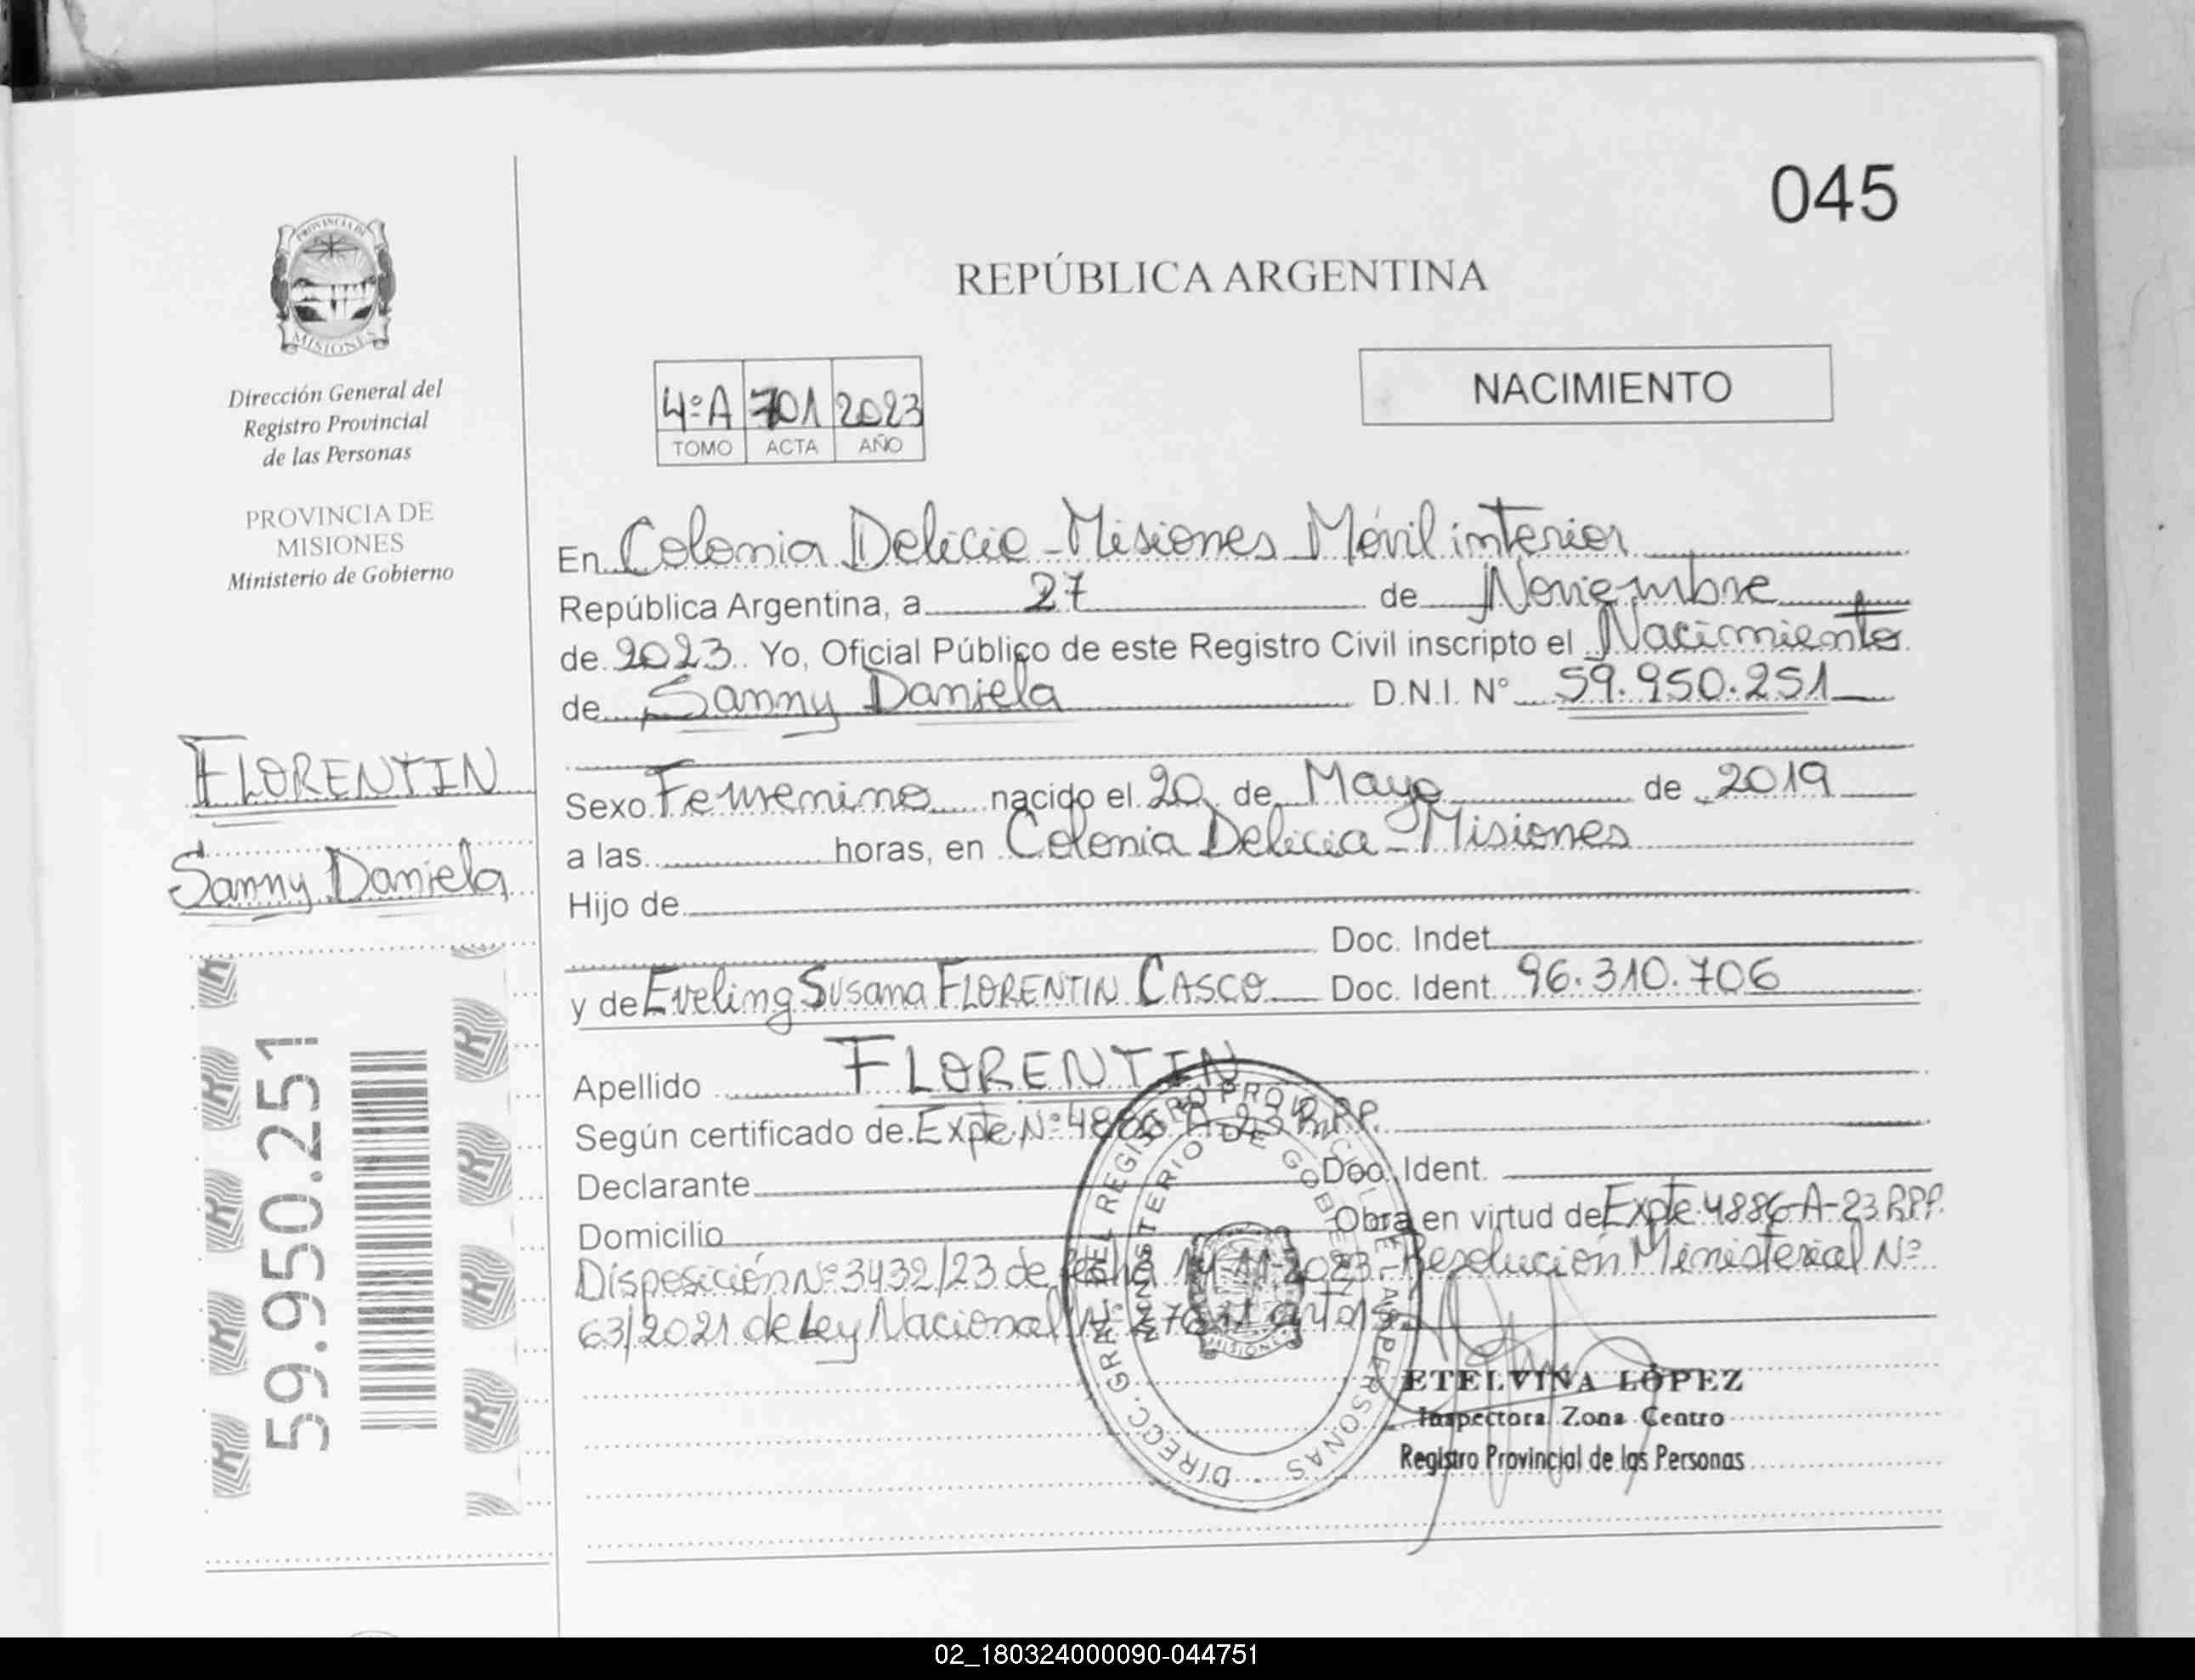 045
REPÚBLICA ARGENTINA
PROVINCIA DE
MISIONES
Dirección General del
Registro Provincial
de las Personas
PROVINCIA DE
MISIONES
Ministerio de Gobierno
4ºA 701 2023
TOMO ACTA AÑO
NACIMIENTO
En Colonia Delicia - Misiones Móvil interior
República Argentina, a 27 de Noviembre
de 2023. Yo, Oficial Público de este Registro Civil inscripto el Nacimiento
de Sanny Daniela D.N.I. Nº 59.950.251
Sexo Femenino nacido el 20 de Mayo de 2019
a las horas, en Colonia Delicia - Misiones
Hijo de
Doc. Indet.
y de Eveling Susana FLORENTIN CASCO Doc. Ident. 96.310.706
Apellido FLORENTIN
Según certificado de Expte Nº 4886-A-23 R.P.P.
Declarante Doc. Ident.
Domicilio Obra en virtud de Expte 4886-A-23 R.P.P.
Disposición Nº 3432/23 de fecha 14-11-2023. Resolución Ministerial Nº
63/2021 de Ley Nacional Nº
FLORENTIN
Sanny Daniela
59.950.251
DIRECC. GRAL. DEL REGISTRO PROVINCIAL DE LAS PERSONAS
MINISTERIO DE GOBIERNO
MISIONES
ETELVINA LÓPEZ
Inspectora Zona Centro
Registro Provincial de las Personas
02_180324000090-044751